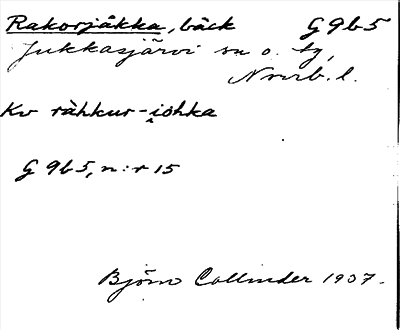 Rakorjåkka, bäck G 9b5
Jukkasjärvi sn o. tg,
Nrrb. l.
Kv ràhkur-i̯ohka
G 9b5, n:r 15
Björn Collinder 1937.